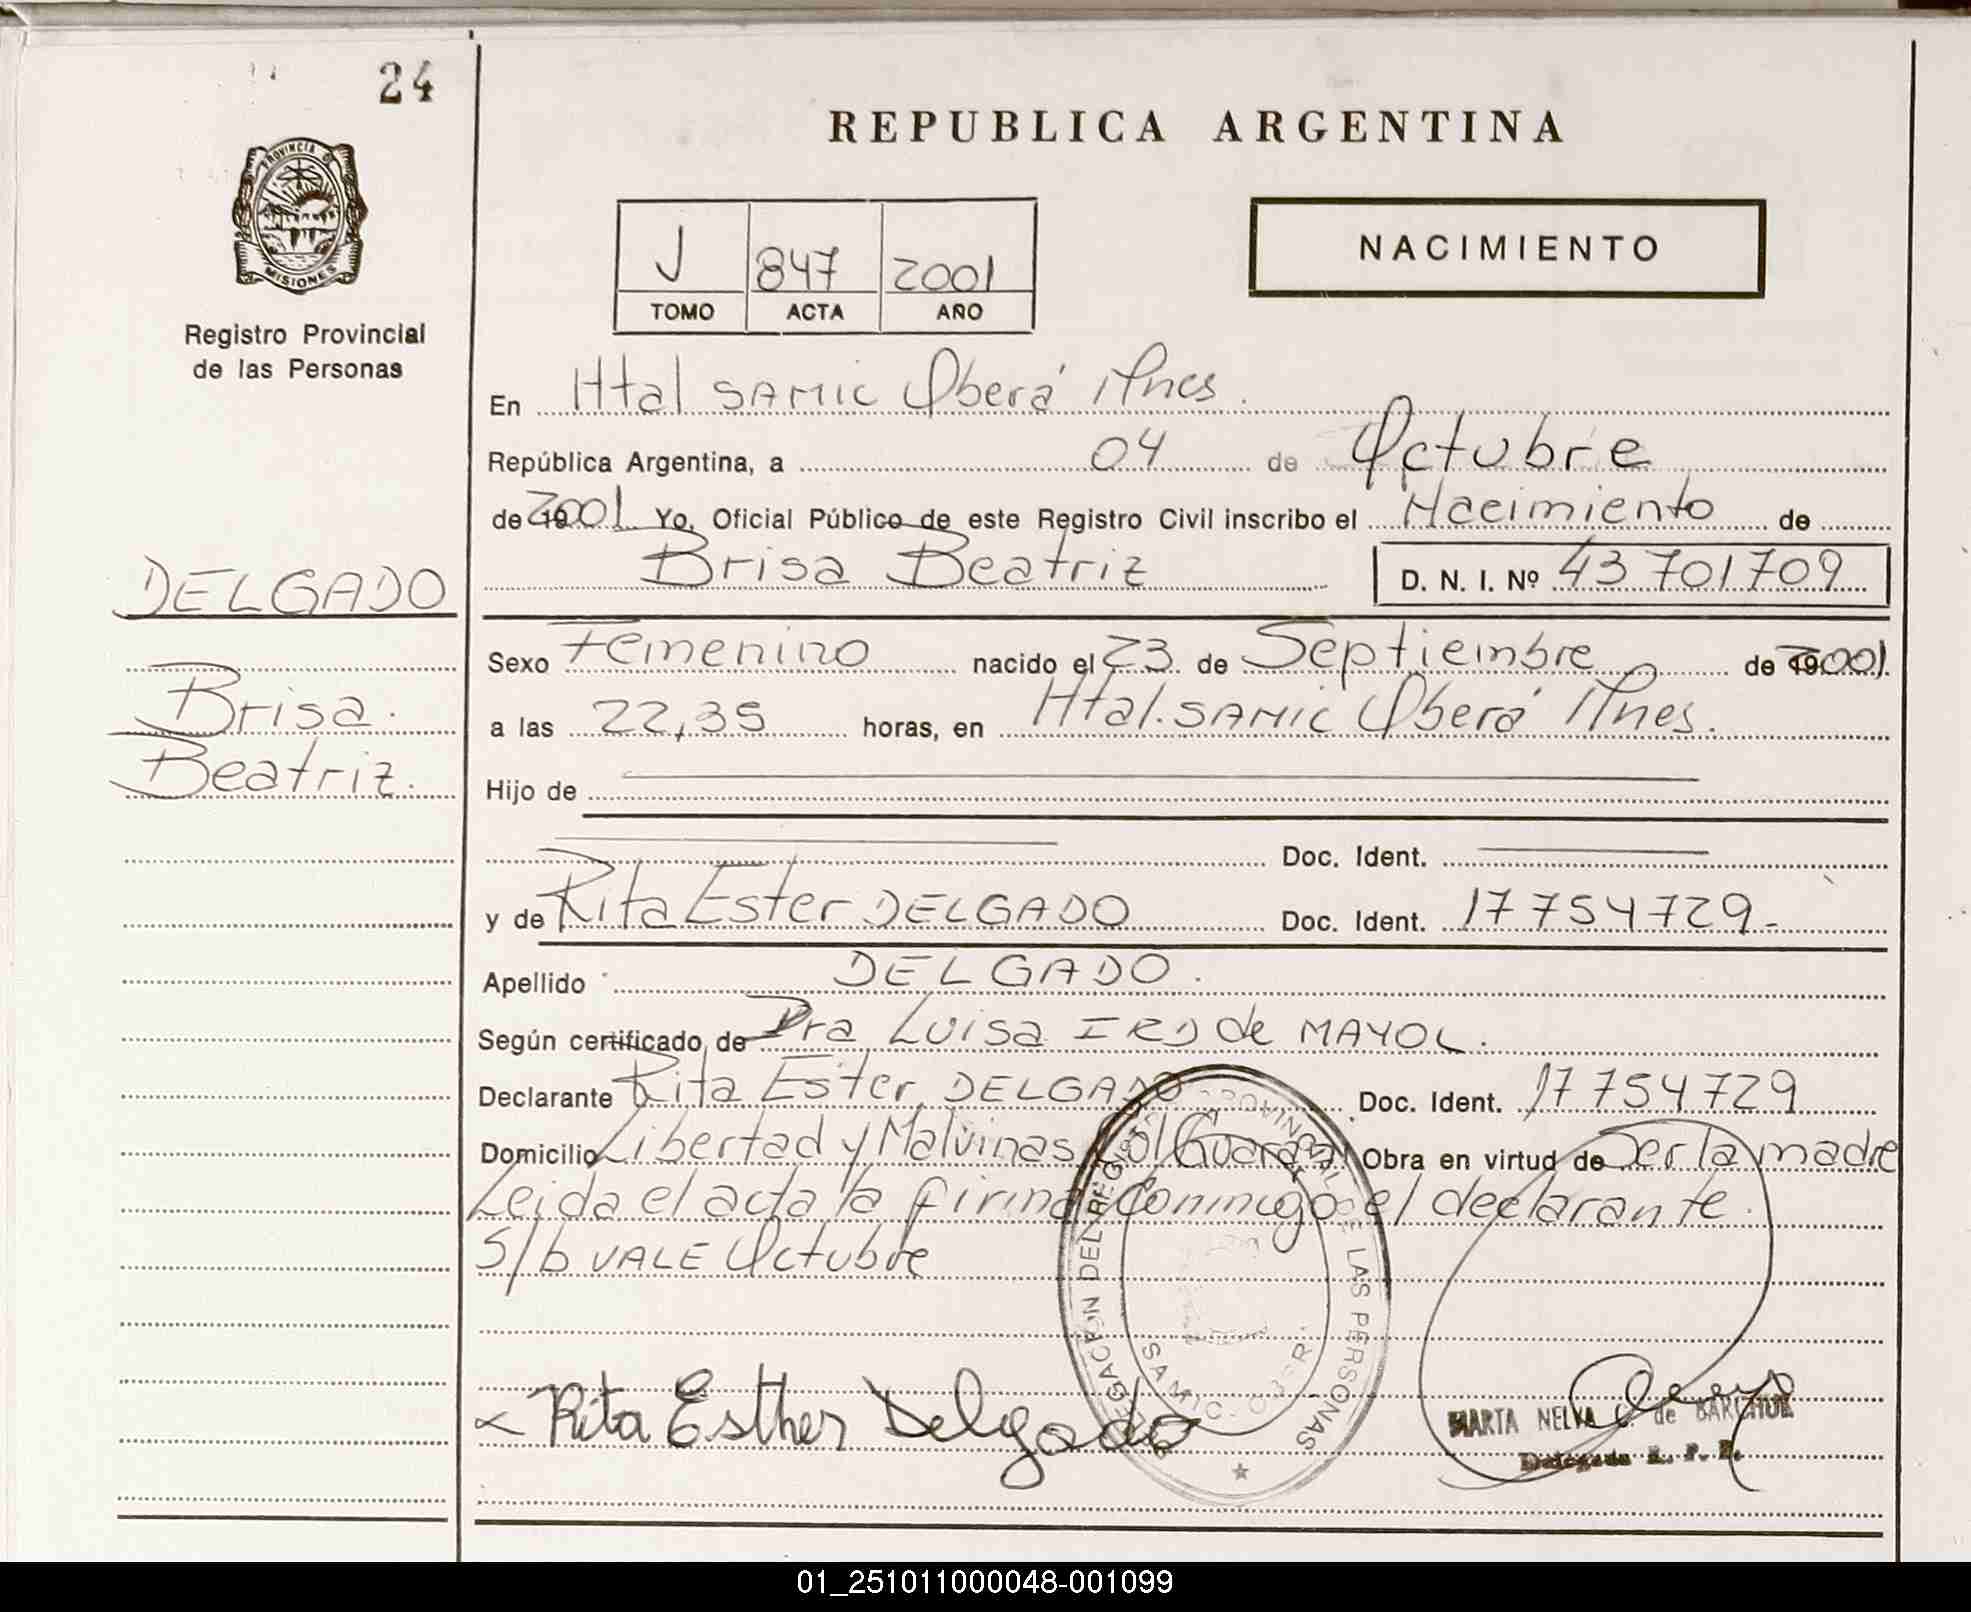 24
REPUBLICA ARGENTINA
PROVINCIA DE
MISIONES
Registro Provincial
de las Personas
J 847 2001
TOMO ACTA AÑO
NACIMIENTO
En Htal SAMIC Oberá Mnes.
República Argentina, a 04 de Octubre
de 2001 Yo, Oficial Público de este Registro Civil inscribo el Nacimiento de
Brisa Beatriz D. N. I. Nº 43701709
DELGADO
Brisa.
Beatriz.
Sexo Femenino nacido el 23 de Septiembre de 2001.
a las 22,35 horas, en Htal. SAMIC Oberá Mnes.
Hijo de
Doc. Ident.
y de Rita Ester DELGADO Doc. Ident. 17754729-
Apellido DELGADO.
Según certificado de Dra Luisa de MAYOL.
Declarante Rita Ester DELGADO Doc. Ident. 17754729
Domicilio Libertad y Malvinas Col Guaraní Obra en virtud de Ser la madre
Leida el acta la firma conmigo el declarante.
S/b VALE Octubre
DELEGACION DEL REGISTRO PROVINCIAL DE LAS PERSONAS
SAMIC - OBERA
Rita Esther Delgado
MARTA NELVA de
Delegada R. P. P.
01_251011000048-001099